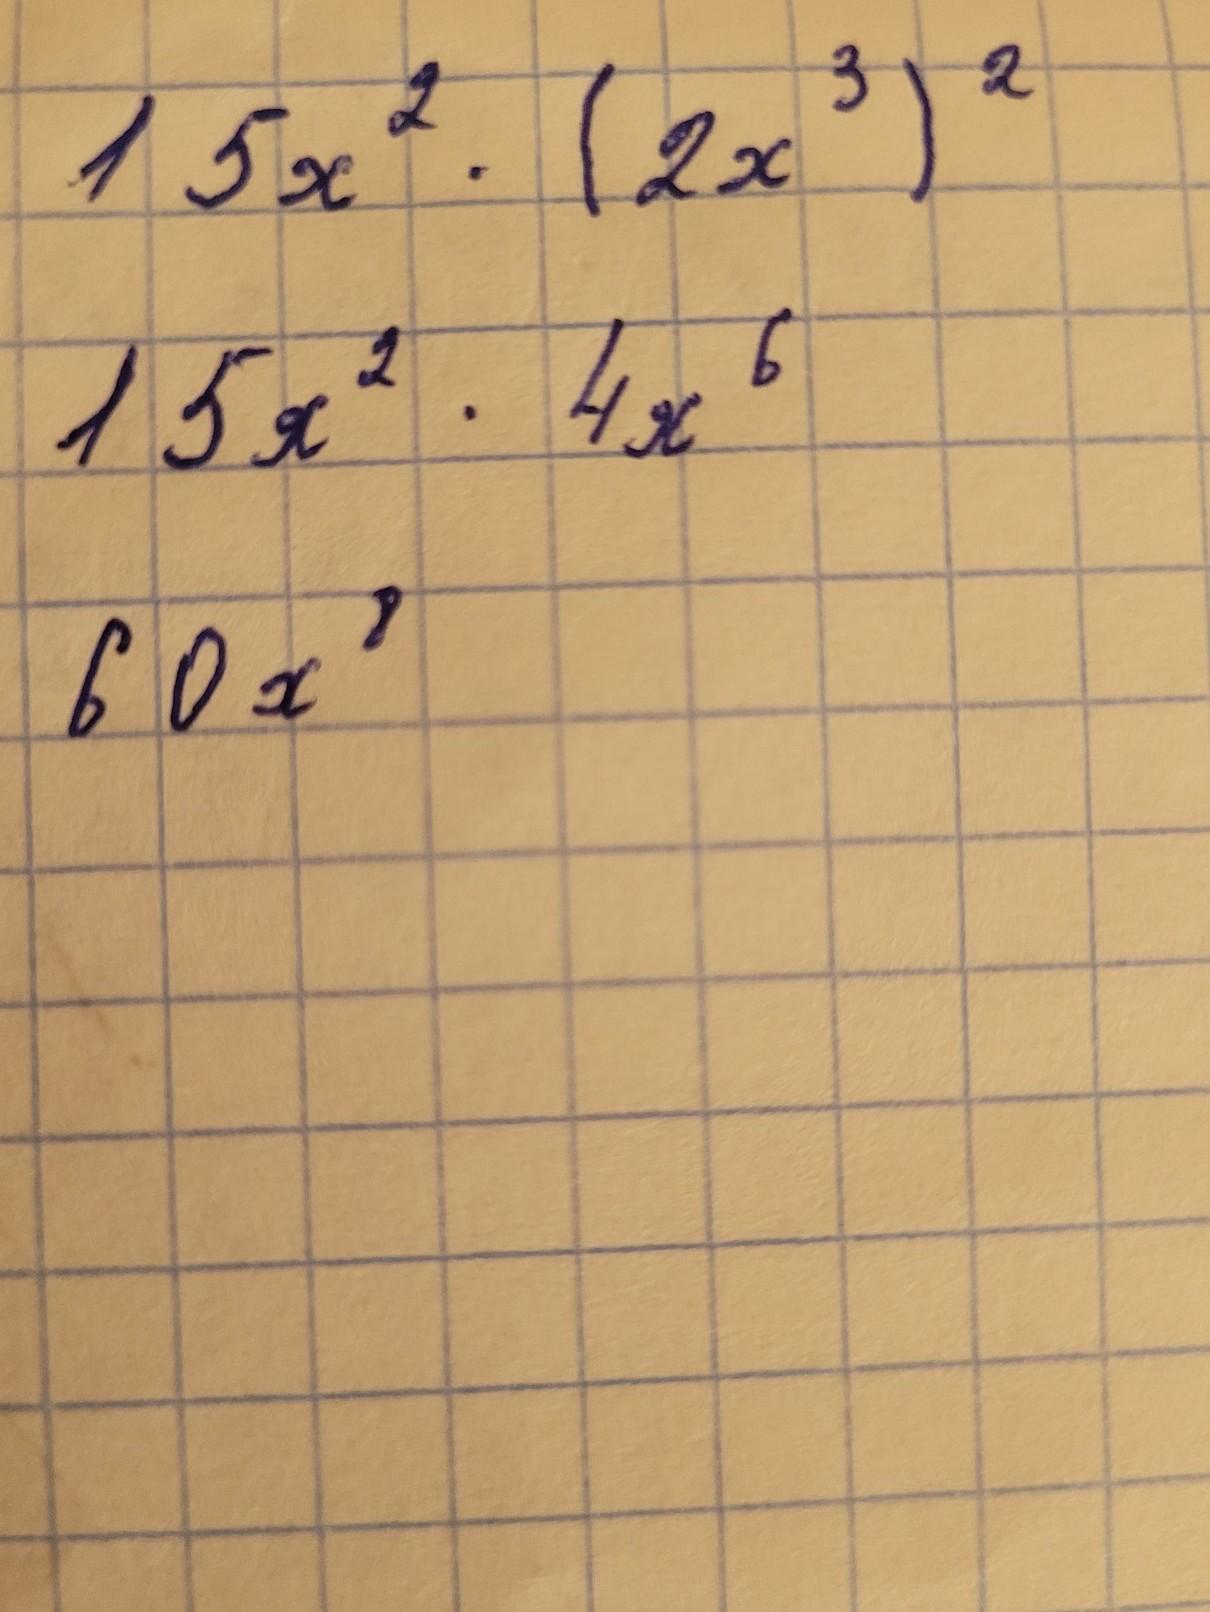 15x² · (2x³)²
15x² · 4x⁶
60x⁸